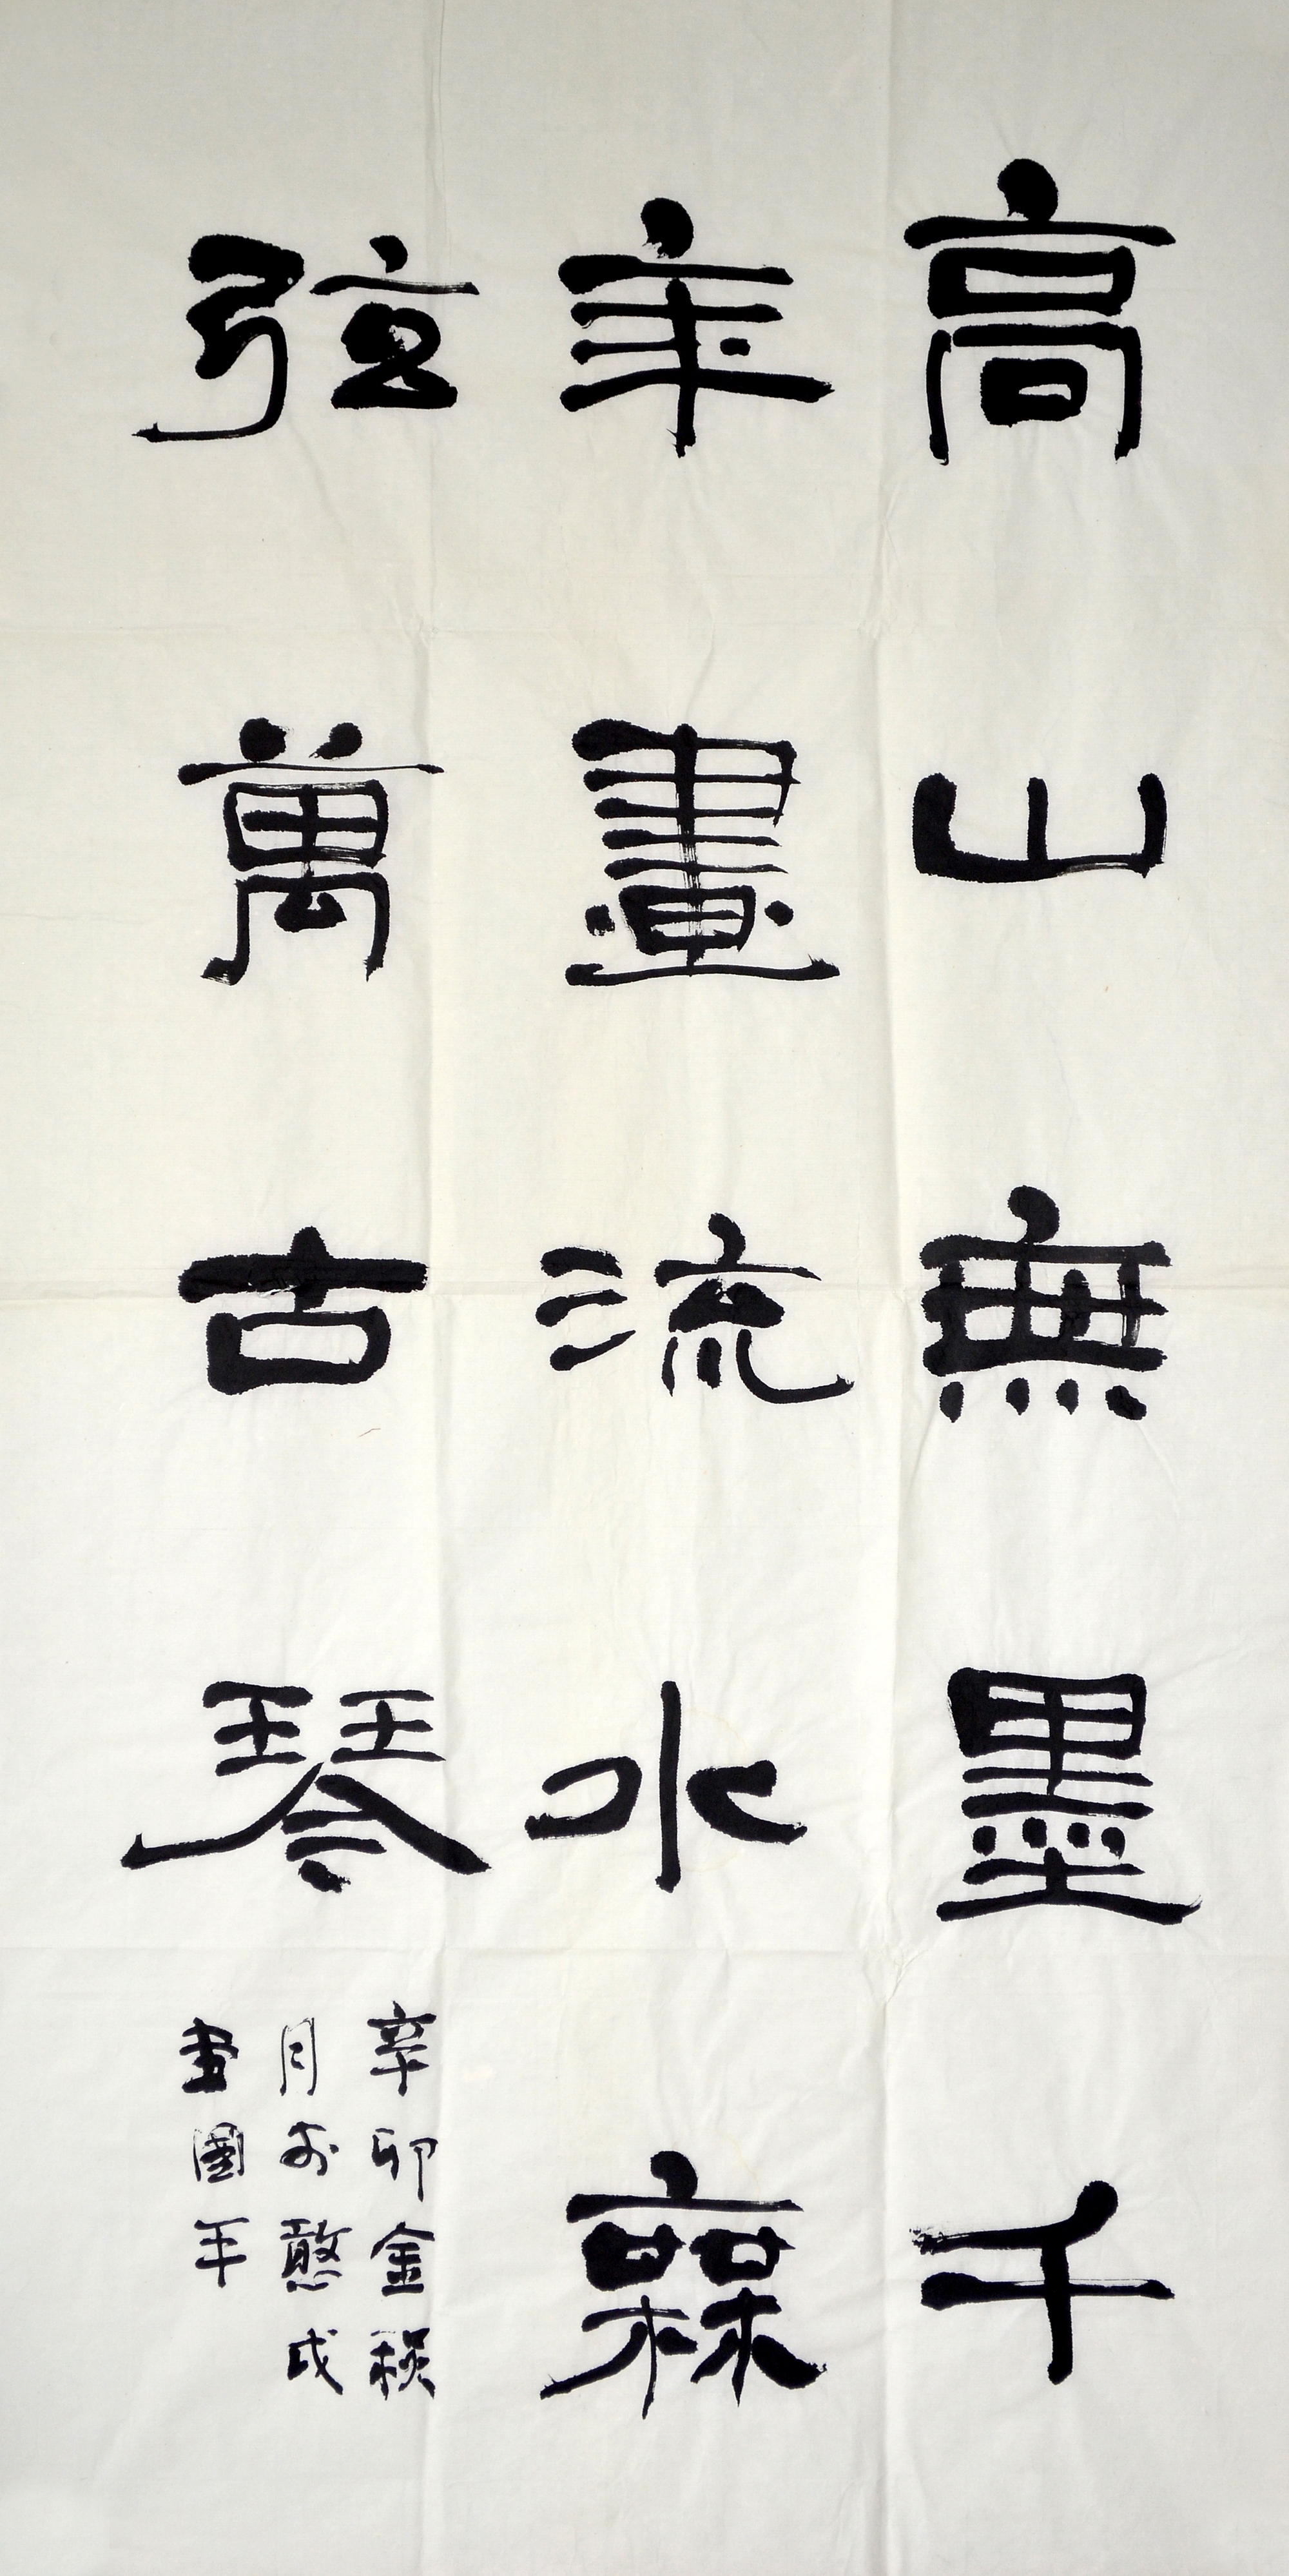 高山無墨千
年畫流水橆
弦萬古琴
辛卯金秋
月於憨
書國年